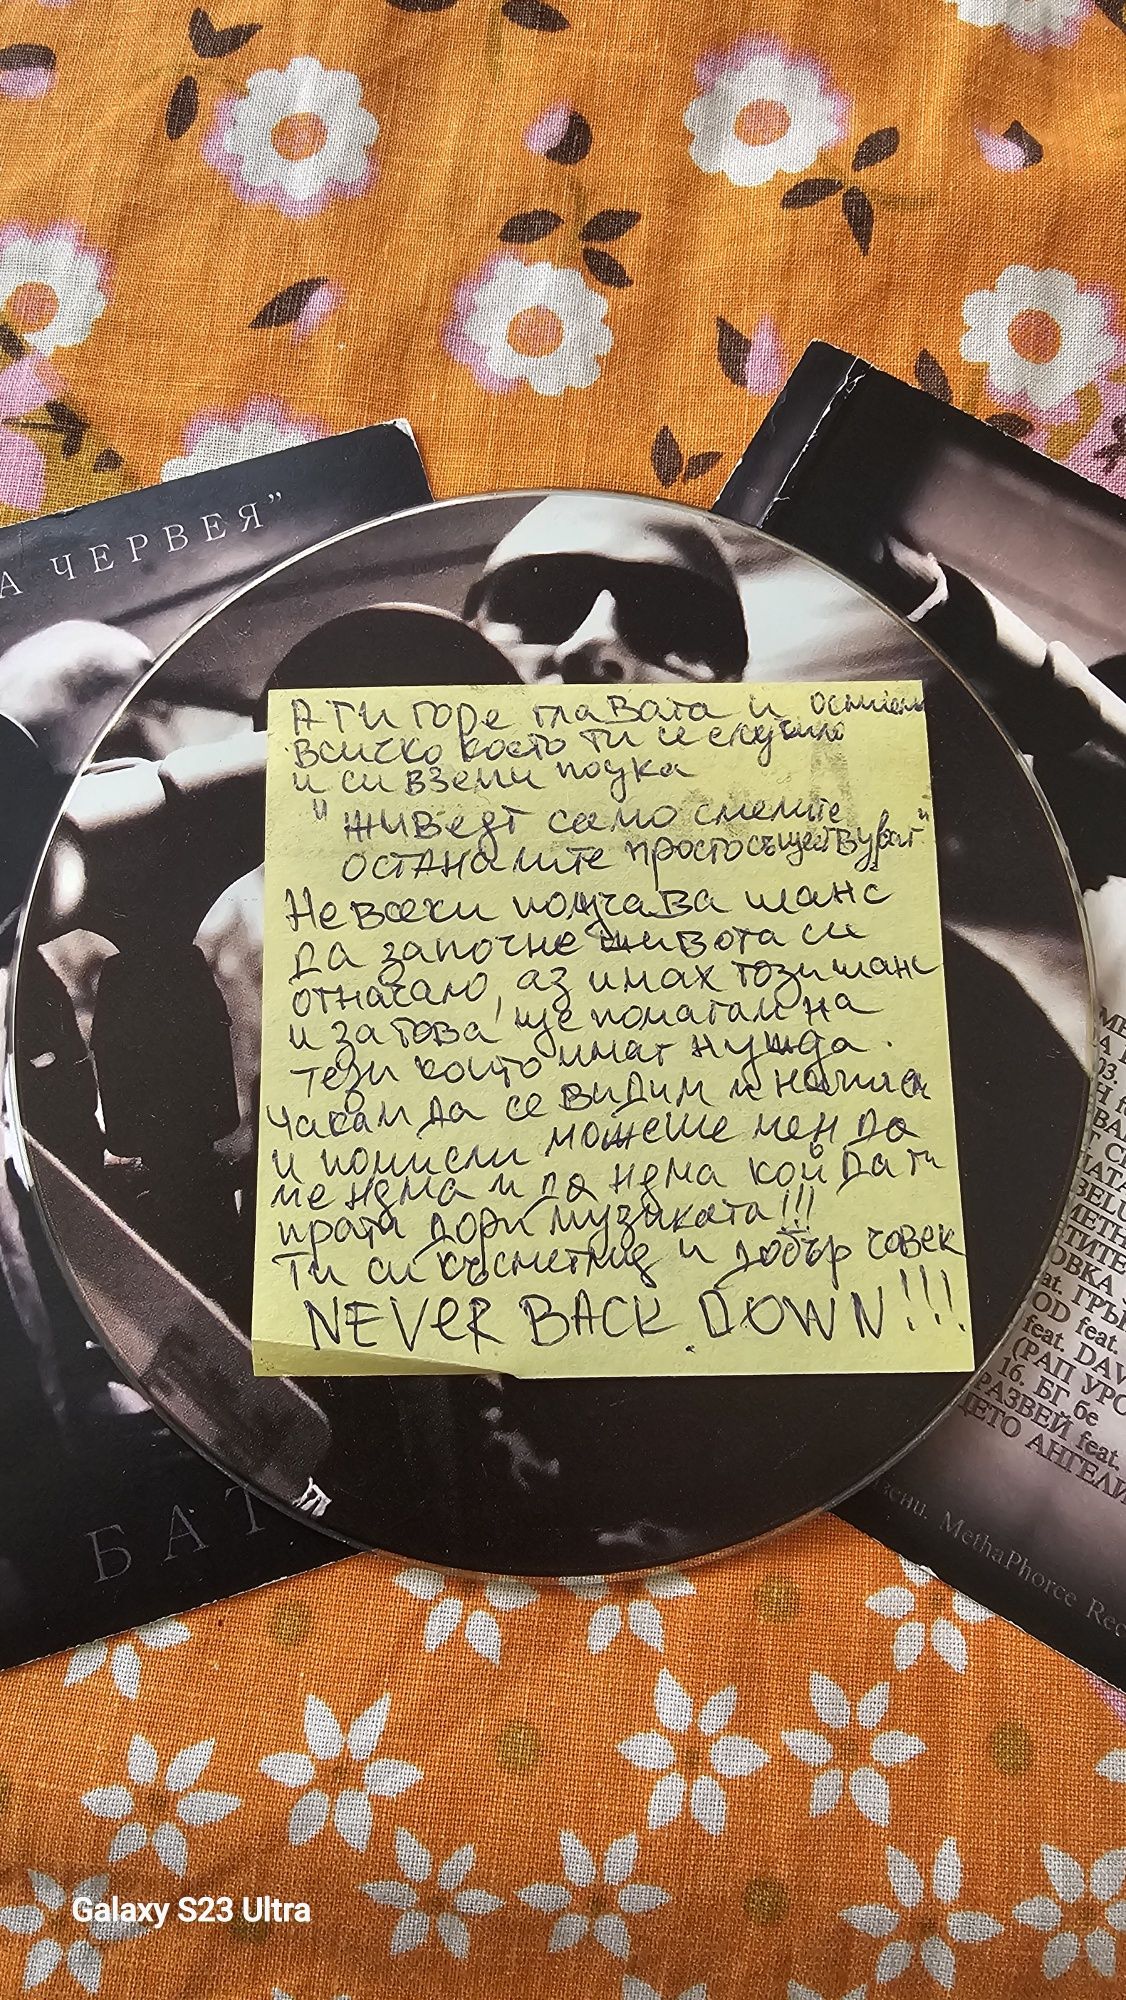 А ЧЕРВЕЯ"
А ТИ ГОРЕ главата и осмисли
всичко което ти се случило
и си вземи поука
"Живеят само смелите
останалите просто съществуват"
Не всеки получава шанс
да започне живота си
отначало, аз имах този шанс
и затова ще помагам на
тези които имат нужда.
Чакам да се видим и
и помисли можеше мен да
ме няма и да няма кой да ти
прати дори музиката!!!
Ти си късметлия и добър човек
NEVER BACK DOWN!!!
БАТ
feat. DAV
(РАП УРО
16. БГ бе
РАЗВЕЙ feat.
ДЕТО АНГЕЛИ
MethaPhorce Rec
Galaxy S23 Ultra